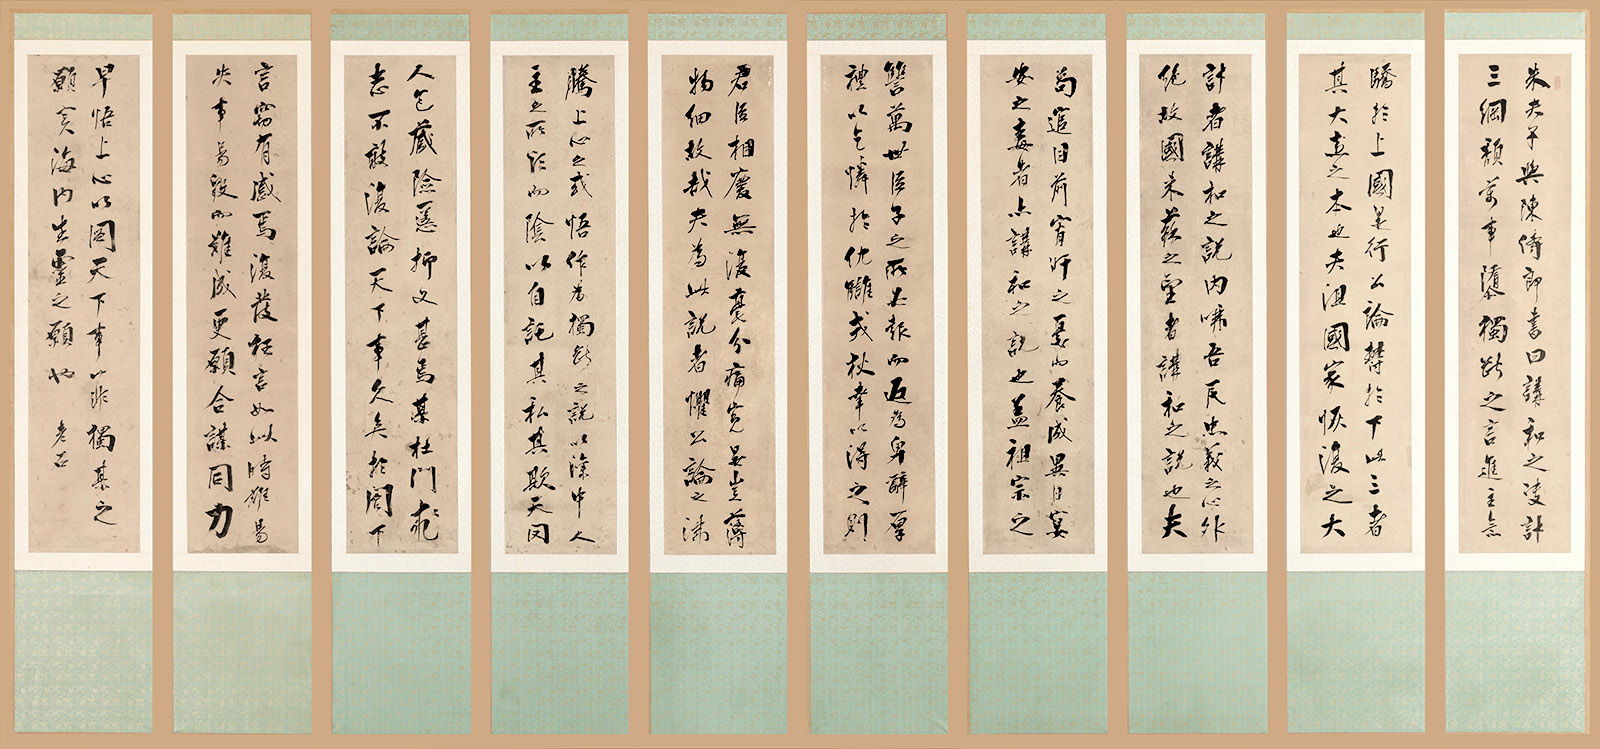 朱夫子與陳侍郎書曰講和之決計
三綱頹萬事隳獨斷之言進主意
驕於上國是行公論鬱於下此三者
其大患之本也夫沮國家恢復之大
計者講和之説內咈吾民忠義之心外
絶故國来蘇之望者講和之説也夫
苟逭目前宵旰之憂而養成異日宴
安之毒者亦講和之説也蓋祖宗之
讐萬世臣子之所必報而返為卑辭厚
禮以乞憐於仇讎幸以得之則
君臣相慶無復豪分痛寃是豈薄
物細故哉夫為此説者懼公論之沸
騰上心之或悟作為獨斷之説以深中人
主之所欲而陰以自託其私其欺天罔
人包藏險慝抑又甚焉某杜門求
志不敢復論天下事久矣於閤下
言竊有感焉復發狂言如此時難易
失事易毀而難成更願合謀同力
早悟上心以圖天下事此非獨某之
願實海內生靈之願也 老石